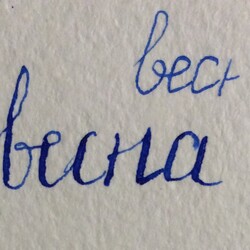 весн
весна